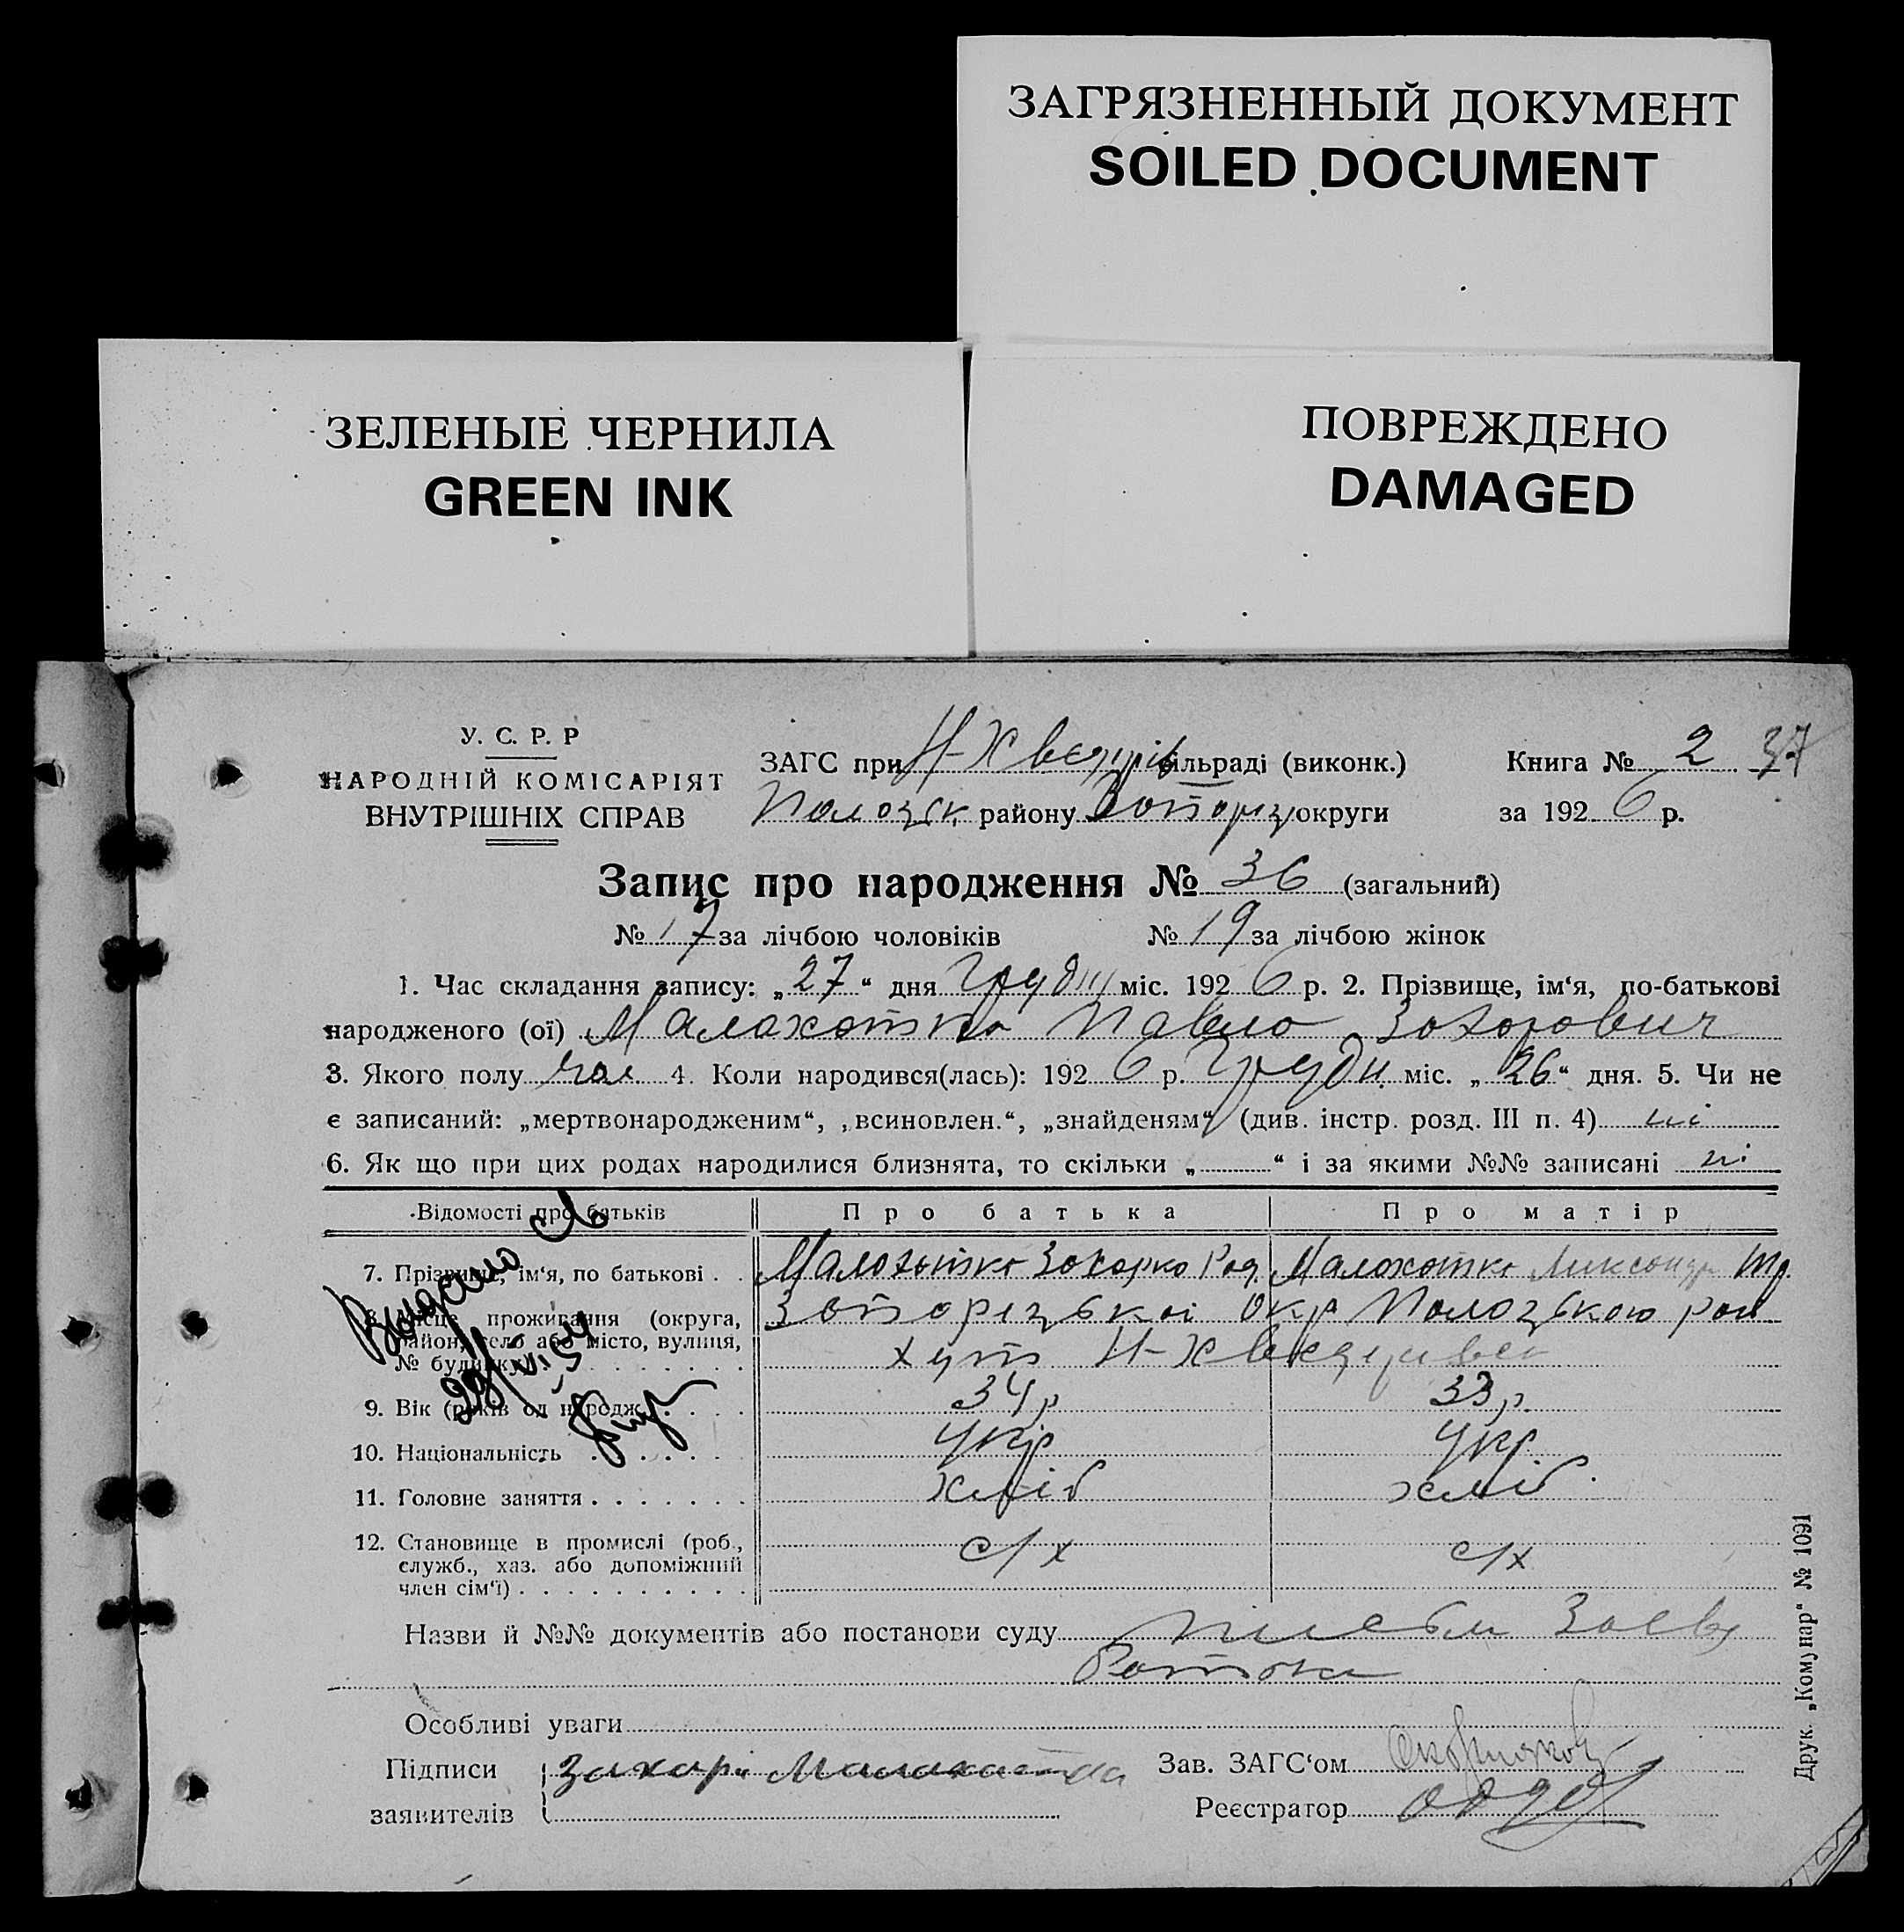 ЗАГРЯЗНЕННЫЙ ДОКУМЕНТ
SOILED DOCUMENT
ЗЕЛЕНЫЕ ЧЕРНИЛА
GREEN INK
ПОВРЕЖДЕНО
DAMAGED
У. С. Р. Р
НАРОДНІЙ КОМІСАРІЯТ
ВНУТРІШНІХ СПРАВ
ЗАГС при сільраді (виконк.)
района округи
Книга № 2 37
за 1926 р.
Запис про народження № 36 (загальний)
№ 17 за лічбою чоловіків № 19 за лічбою жінок
1. Час складання запису: „27“ дня Грудн міс. 1926 р. 2. Прізвище, ім‘я, по-батькові
народженого (ої) Малахатка Павло Захарович
3. Якого полу чол 4. Коли народився(лась): 1926 р. Грудн. міс. „26“ дня. 5. Чи не
є записаний: „мертвонародженим“, „всиновлен.“, „знайденям“ (див. інстр. розд. III п. 4) ні
6. Як що при цих родах народилися близнята, то скільки „ “ і за якими №№ записані ні
Відомості про батьків Про батька Про матір
7. Прізвище, ім‘я, по батькові . . Малахатка Захарко Малахатка
8. Місце проживання (округа,
район, село або місто, вулиця,
№ будинку) Запорізької Окр Пологзького рай
хут Н-
9. Вік (років од народж.) . . . . 34 р 33 р.
10. Національність . . . . . . . Укр Укр.
11. Головне заняття . . . . . . . хліб хліб.
12. Становище в промислі (роб.,
служб., хаз. або допоміжний
член сім‘ї) . . . . . . . . . . с/х с/х
Назви й №№ документів або постанови суду
Батька
Особливі уваги
Підписи
заявителів
Захарі Малахатка
Зав. ЗАГС‘ом
Реєстратор
Друк. „Комунар“ № 1091